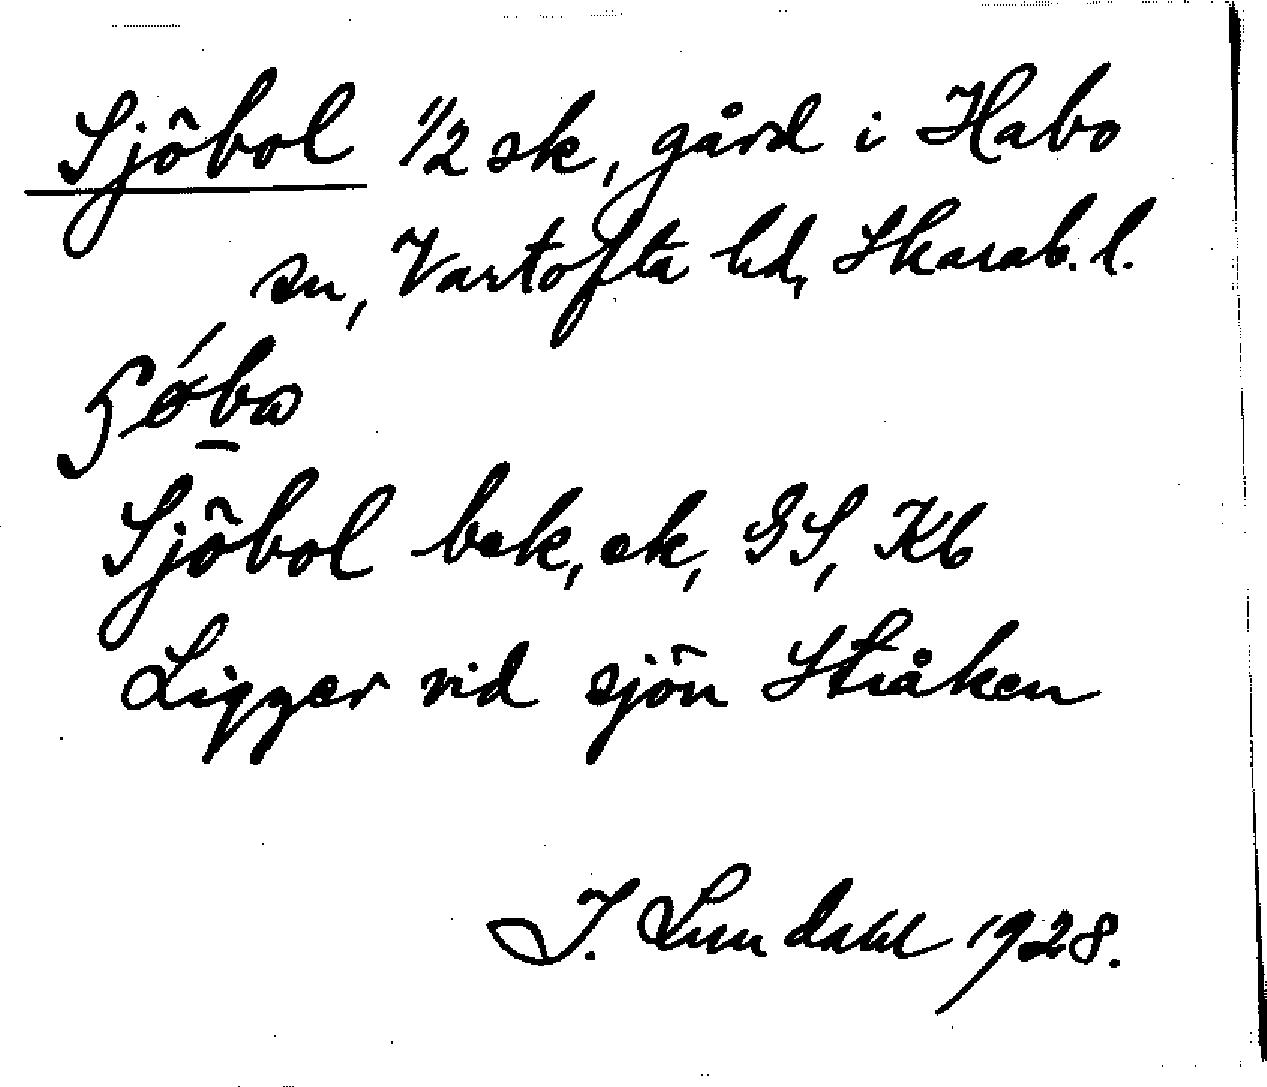 Sjöbol 1/2 sk, gård i Habo
sn, Vartofta hd, Skarab. l.
Sjöbol bek, ek, GS, Kb
Ligger vid sjön Stråken
I. Lundahl 1928.